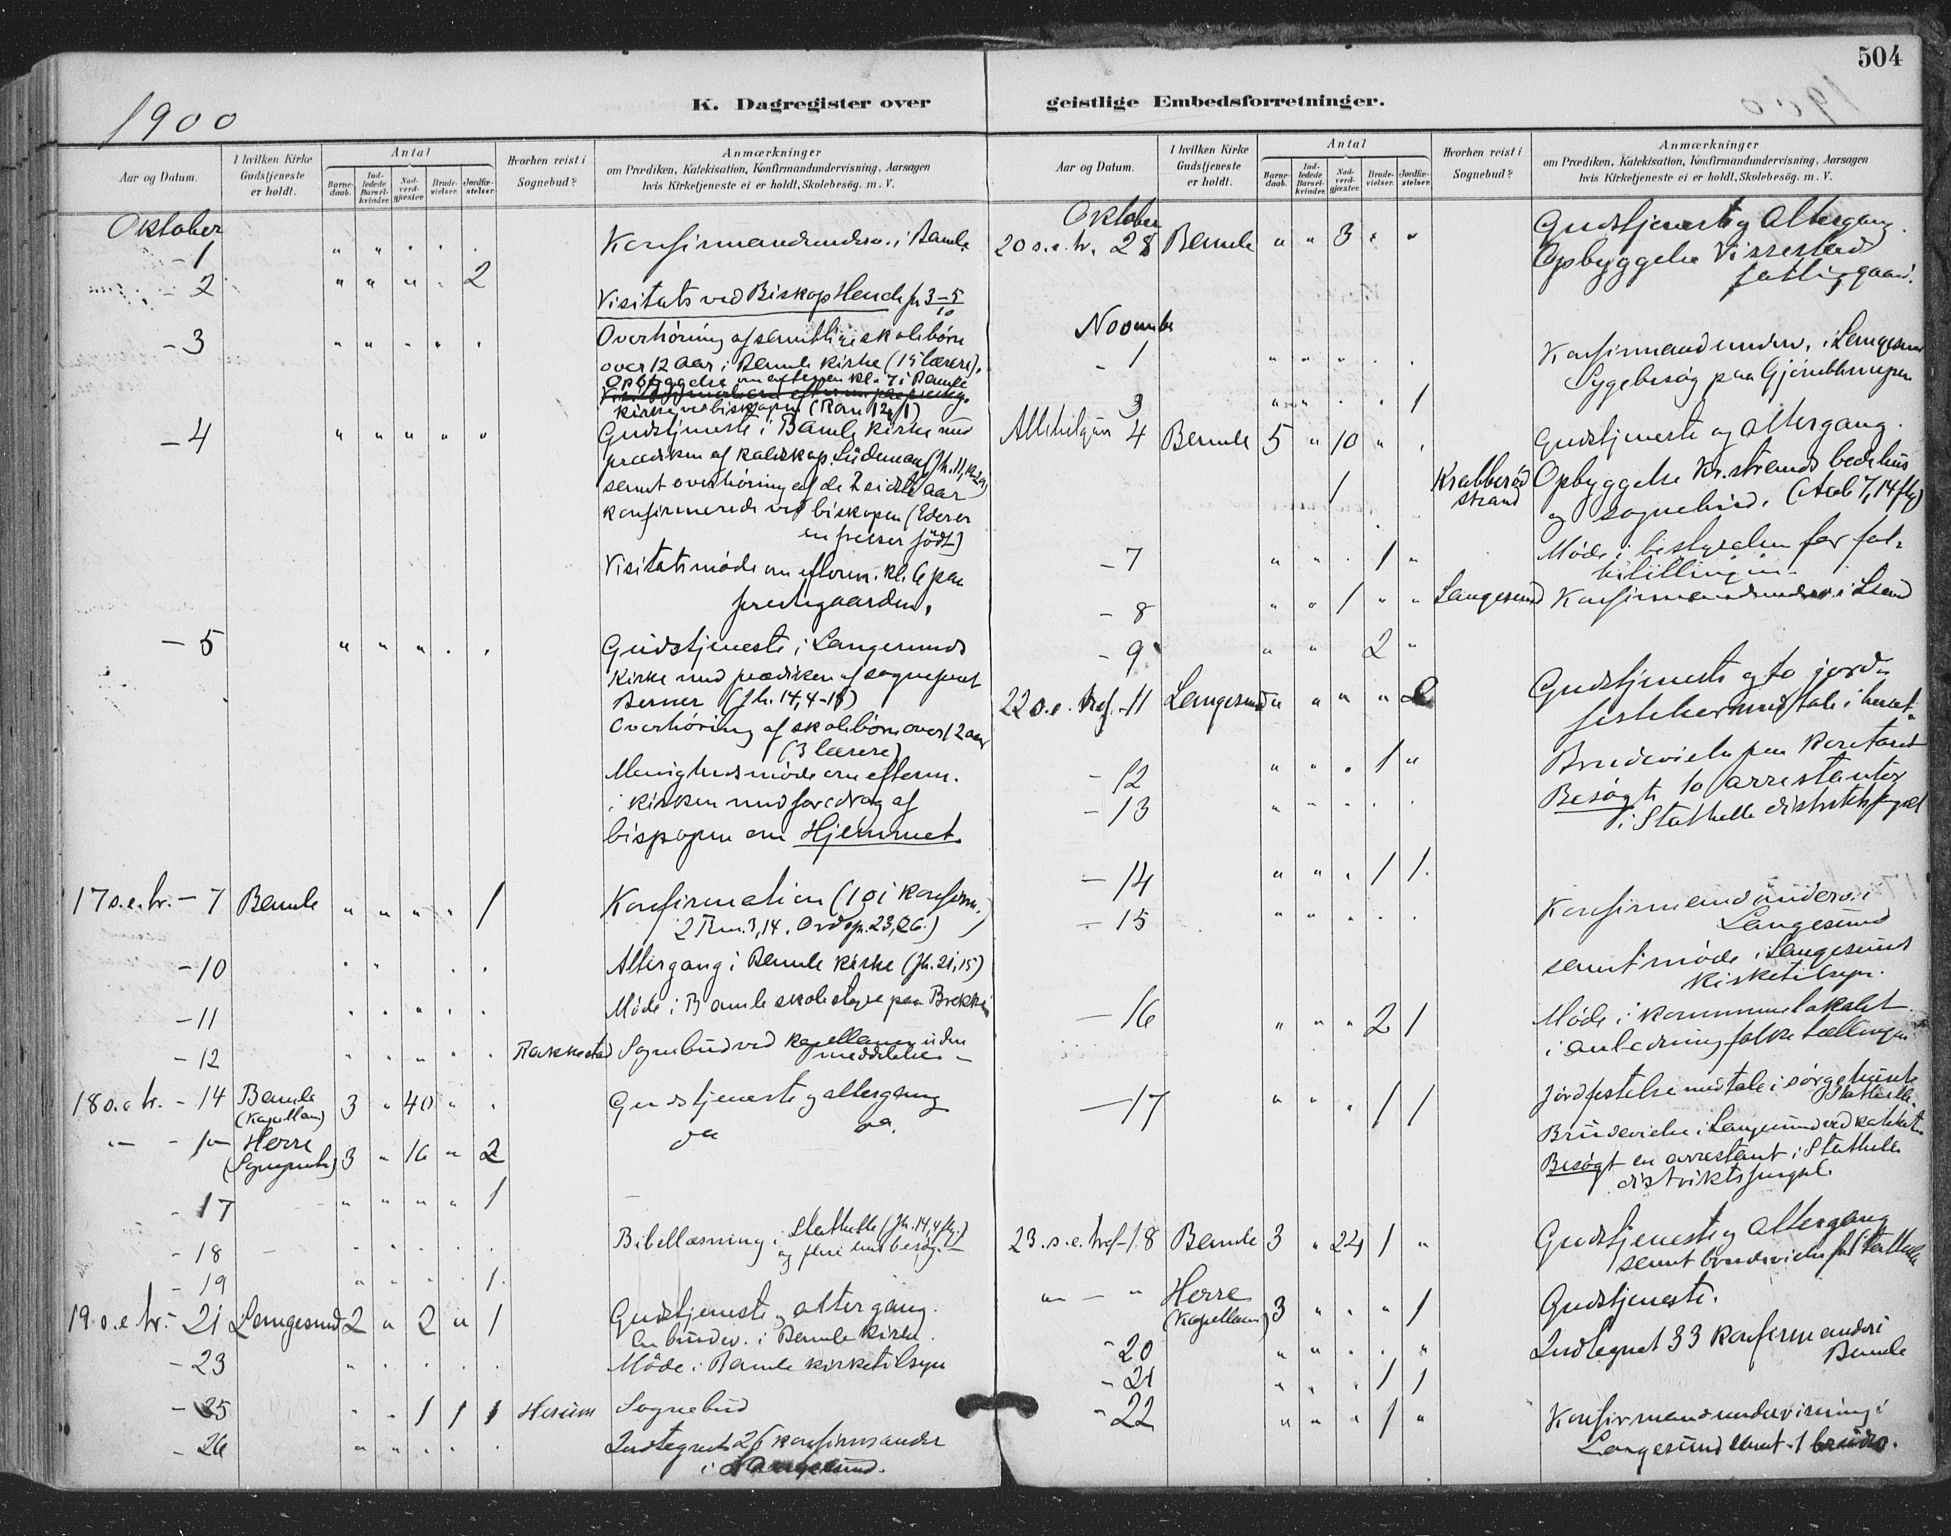 504
1900
K. Dagregister over geistlige Embedsforretninger.
Aar og Datum.
I hvilken Kirke Gudstjeneste er holdt.
Antal
Barnedaab.
Indledede Barselkvinder.
Nadverdgjæster
Brudevielser.
Jordfæstelser
Hvorhen reist i Sognebud?
Anmærkninger
om Prædiken, Katekisation, Konfirmandundervisning, Aarsagen
hvis Kirketjeneste ei er holdt, Skolebesøg. m. V.
Oktober
- 1 " " " . . Konfirmandunderv. i Bamle
- 2 " " " . 2
Visitats ved Biskop Heuch fr 3-5/10
- 3 " " " " . Overhøring af samtlige skolebørn
over 12 aar i Bamle kirke (15 lærere).
Opbyggelse om aftenen kl. 7 i Bamle
kirke ved biskopen (Rom 12,1)
- 4 " " " " " Gudstjeneste i Bamle kirke med
prædiken af
samt overhøring af de 2 sidste aar
konfirmerede ved biskopen (Eder er
en frelser født)
Visitatsmøde om efterm. kl. 6 paa
prestegaarden.
- 5 " " " . . Gudstjeneste i Langesunds
kirke med prædiken af sogneprest
Berner (Jh. 14,4-18)
Overhøring af skolebørn over 12 aar
(3 lærere)
Menighedsmøde om efterm.
i kirken med foredrag af
biskopen om Hjemmet.
17 s.e.tr. - 7 Bamle " " " " 1 Konfirmation (101 konfirm.)
2 Tim. 3,14. Ordsp. 23,26.)
- 10 " " . . Altergang i Bamle kirke (Jh. 21,15)
- 11 . . " . . Møde i Bamle skolestyre paa Brekke
- 12 " " " " . Rakkestad Sognebud ved kapellanen uden
meddelelse -
18 s.e.tr. - 14 Bamle 3 " 40 " . Gudstjeneste og altergang
(Kapellan)
" - Herre 3 " 16 " 2
(Sognepr.)
- 17 " " " " 1
- 18 Bibellæsning i Stathelle (Jh. 14,4 flg.)
og flere husbesøg -
- 19 " " . . 1
19 s.e.tr. - 21 Langesund 2 " 2 " 1 Gudstjeneste og altergang.
En brudev. i Bamle kirke.
- 23 Møde i Bamle kirketilsyn
- 25 . . 1 1 1 Herum Sognebud
- 26 " " " . . Indtegnet 26 konfirmander
i Langesund.
Antal
Aar og Datum.
I hvilken Kirke Gudstjeneste er holdt.
Barnedaab.
Indledede Barselkvinder.
Nadverdgjæster
Brudevielser.
Jordfæstelser.
Hvorhen reist i Sognebud?
Anmærkninger
om Prædiken, Katekisation, Konfirmandundervisning, Aarsagen
hvis Kirketjeneste ei er holdt, Skolebesøg. m. V.
Oktober
20 s.e.tr. 28 Bamle " " 3 " " Gudstjeneste og altergang.
Opbyggelse Vissestad
fattiggaard.
November
- 1 " " " . . Konfirmandunderv. i Langesund
Sygebesøg paa
3 " " . . 1
Allehelgens 4 Bamle 5 " 10 " . Gudstjeneste og altergang.
1 Krabberød strand Opbyggelse Kr.strands bedehus
og sognebud. (Aab 7,14 flg)
- 7 " " . 1 " Møde i bestyrelsen for folketællingen -
- 8 " " 1 " " Langesund Konfirmandunderv. i Lsund
- 9 " " 2 "
22 s.e.tref. - 11 Langesund " " " " 2 Gudstjeneste og to jordfæstelser med tale i huset.
- 12 " " . 1 " Brudevielse paa kontoret
- 13 " " " . . Besøgt 10 arrestanter
i Stathelle distriktsfængsel
- 14 " " . 1 1.
- 15 " " " . . Konfirmandunderv. i
Langesund
samt møde i Langesunds
kirketilsyn.
- 16 " " " 2 1 Møde i kommunelokalet
i anledning folketællingen
- 17 " " . 1 1 Jordfæstelse med tale i sørgehuset
Stathelle.
Brudevielse i Langesund ved kateket
Besøgt en arrestant i Stathelle
distriktsfængsel.
23. s.e.tref - 18 Bamle 3 " 24 1 " Gudstjeneste og altergang
samt brudevielse fra Stathelle
" - " Herre 3 " " " 1 Gudstjeneste.
(Kapellan)
- 20 " " " . " Indtegnet 33 konfirmander i
Bamle
- 21 " " . 1 1
- 22 " " " 1 " Konfirmandundervisning i
Langesund samt 1 brudev.